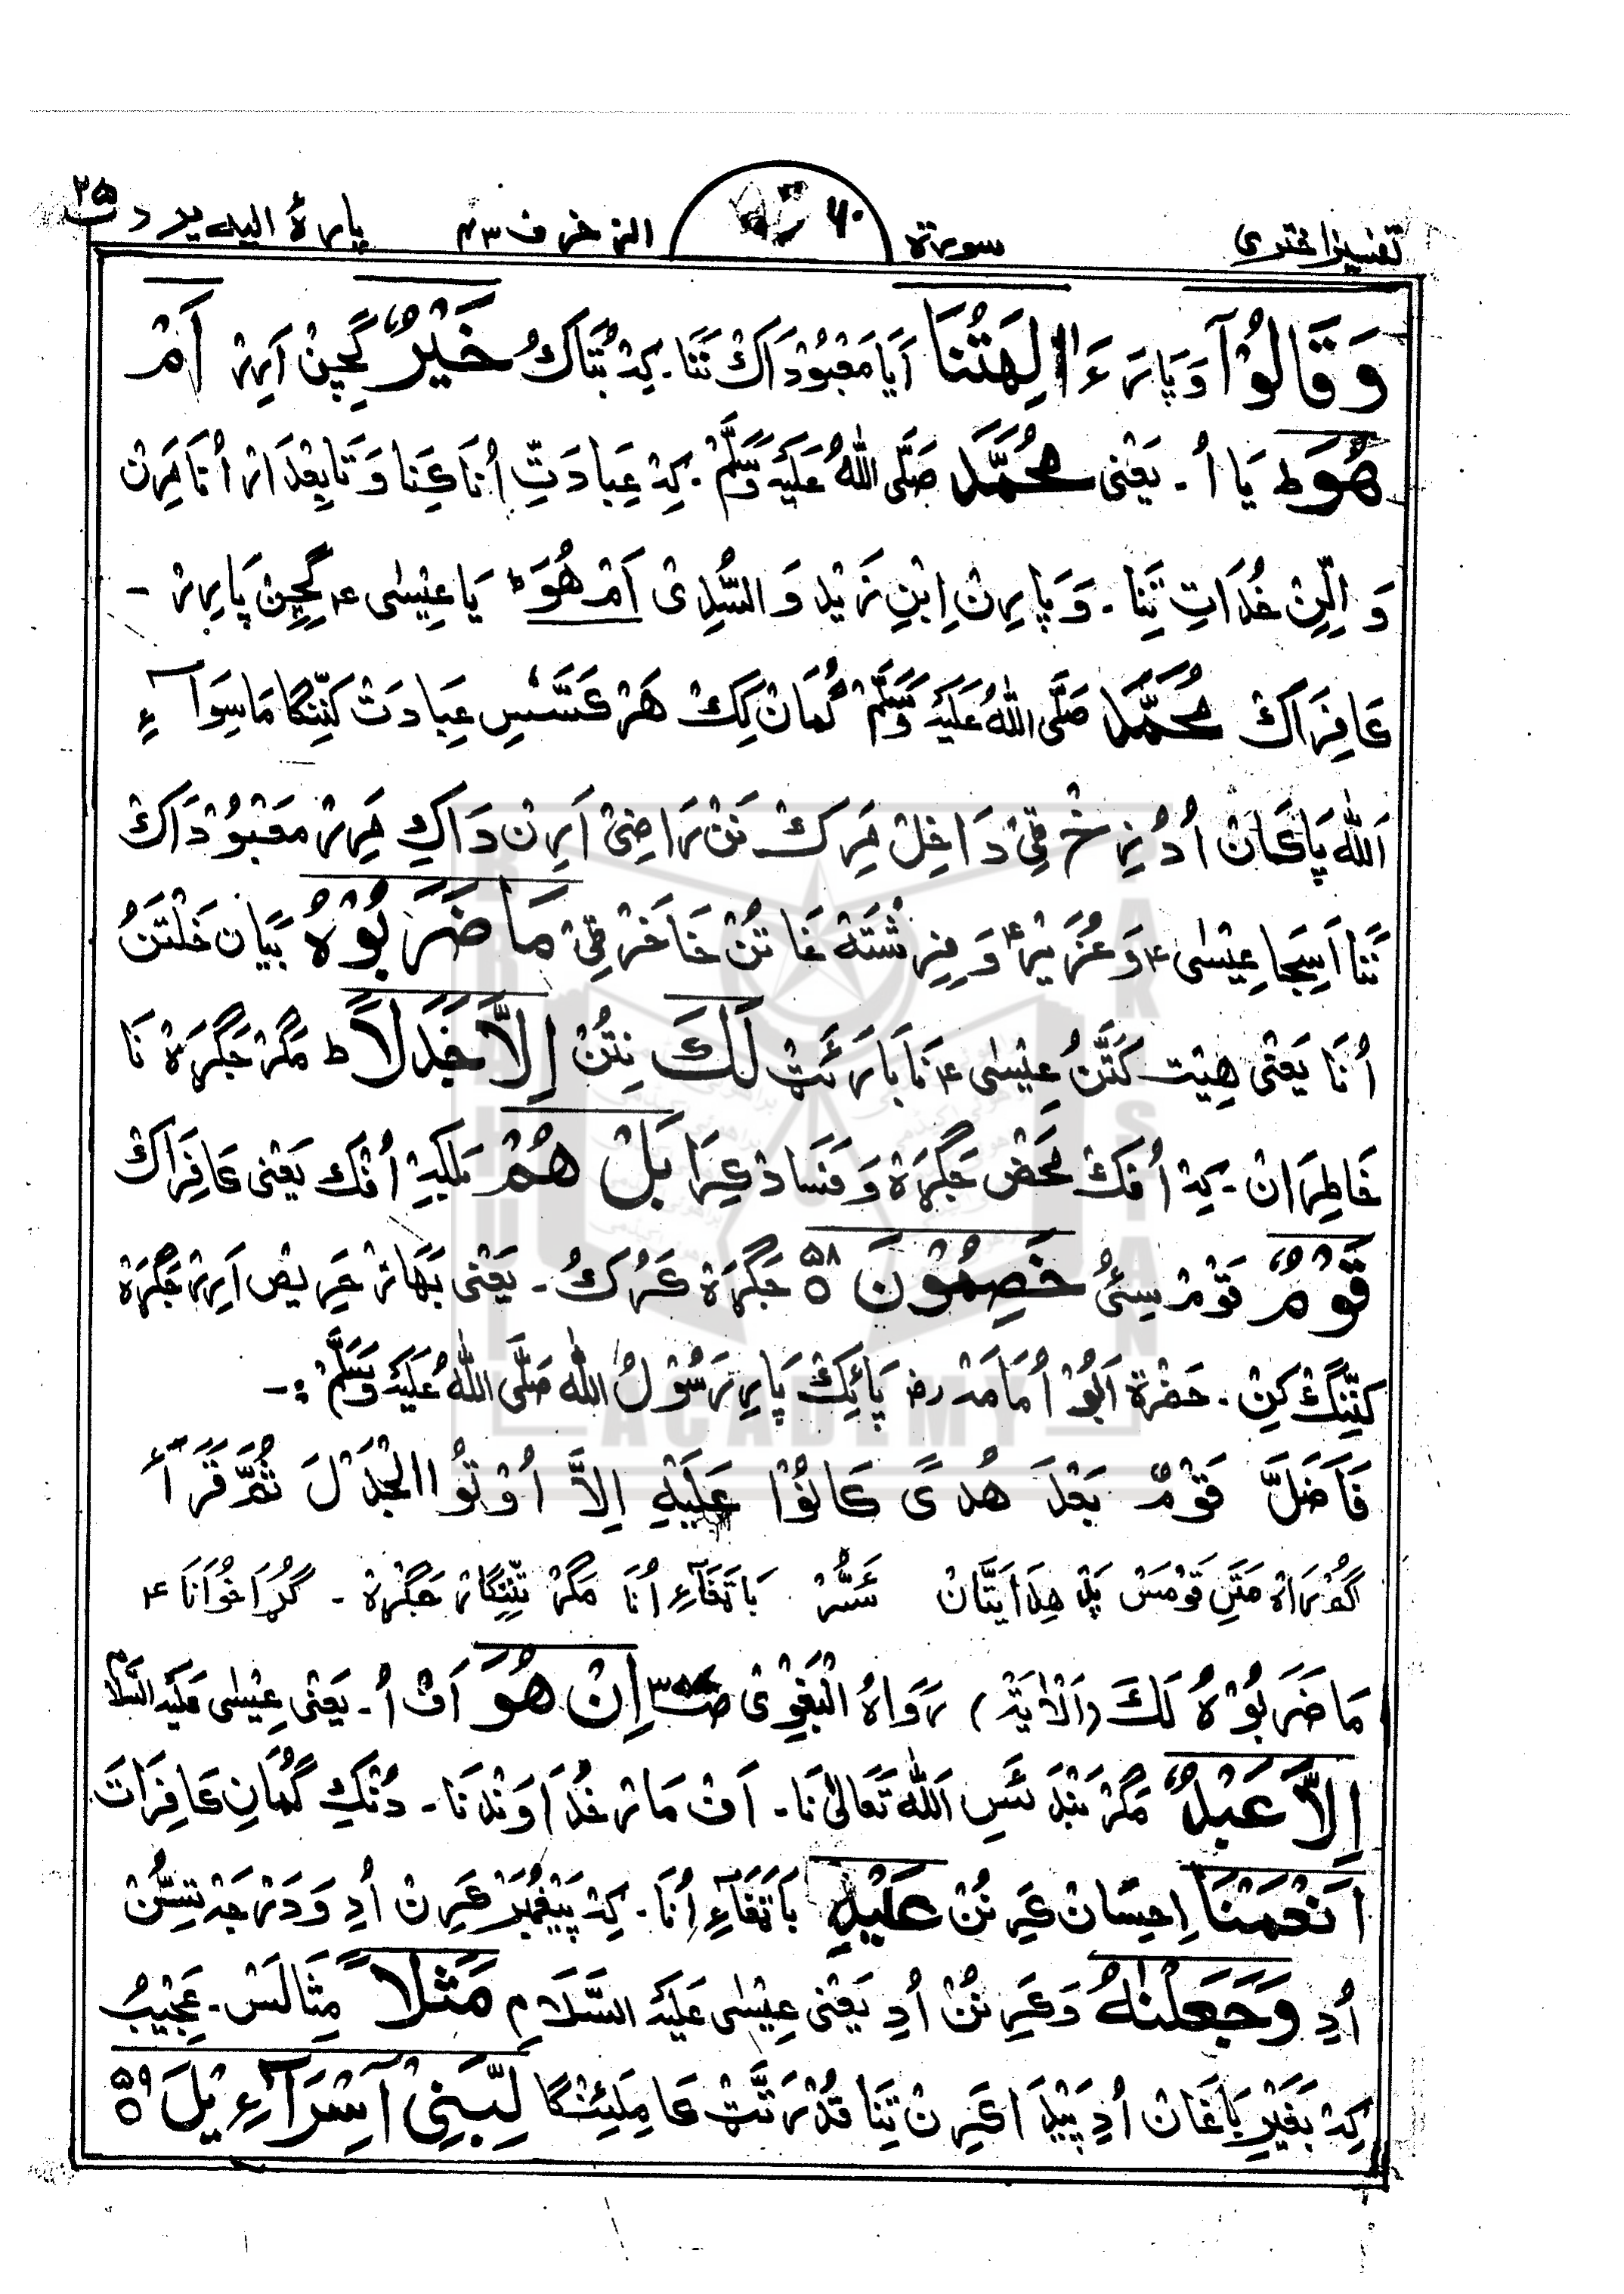 تفسیر اختری سورة ۶۰ الزخرف ۴۳ پارهٔ الیه یرد ۲۵
وَقَالُوْآ وَپَارَ ءَاٰلِهَتُنَا اَیَا مَعْبُوْدَاکْ نَنَا۔ کِہْ بُتَّاکُ خَیْرٌ گِچِنْ اَرِرْ اَمْ
هُوَ ط یَا اُ۔ یَعْنِی مُحَمَّد صَلَّی اللّٰهُ عَلَیْهِ وَسَلَّمْ۔ کِہْ عِبَادَتِ اُنَا کِنَا وَ تَابِعْدَارْ اُنَا مَرِنْ
وَ اِلِّنْ خُدَاتِ تَنَا۔ وَ پَارِنْ اِبْنِ زَیْد وَ السُّدِیْ اَمْ هُوَ ط یَا عِیْسٰی ؑ گِچِنْ پَارِرْ -
کَافِرَاکْ مُحَمَّد صَلَّی اللّٰهُ عَلَیْهِ وَسَلَّمْ گُمَانْ کِکْ هَرْ کَسَّسِ عِبَادَتْ کِنِّنْگَا مَاسِوَآءِ
اَللّٰه پَاکَانْ اُ دُزِخْ ٹِیْ دَاخِلْ مَرِکْ نَنْ رَاضِیْ اَرِنْ دَاکِ مَرِرْ مَعْبُوْدَاکْ
نَنَا اَسِجَا عِیْسٰی ؑ وَ عُزَیْر ؑ وَ فِرِشْتَهْ غَاتُنْ خَاخَرْ ٹِیْ مَا ضَرَبُوْهُ بَیَان خَلْتَنُ
اُنَا یَعْنِی هِیْت کَتَّنُ عِیْسٰی ؑ نَا بَارَئَٹْ لَکَ نِتُنْ اِلَّا جَدَلًا ط مَگَرْ جَگْرَہْ نَا
خَاطِرَانْ۔ کِہْ اُفَکْ مَحْض جَگْرَہْ وَ فَسَادْ کِرَا بَلْ هُمْ بَلْکِہْ اُفْک یَعْنِی کَافِرَاکْ
قَوْمٌ قَوْمْ سِئُ خَصِمُوْنَ ۵۸ جَگْرَہْ کَرُکُ۔ یَعْنِی بَهَازْ حَرِیْص اَرِرْ جَگْرَہْ
کِنِّنْگْ کِنْ۔ حَضْرَة اَبُوْ اُمَامَهْ رض پَائِکْ پَارِ رَسُوْلُ اللّٰه صَلَّی اللّٰهُ عَلَیْهِ وَسَلَّمْ :-
فَاَضَلَّ قَوْمٌ بَعْدَ هُدًی کَانُوْا عَلَیْهِ اِلَّا اُوْتُوا الْجَدَلَ ثُمَّ قَرَأَ
گُمْرَاہْ مَتَنِ قَوْمَسْ پَدْ هِدَایَتَّانْ شَسُّرْ بَاتَغَاءِ اُنَا مَگَرْ تِنِّنْگَارْ جَگْرَہْ - گُڑَا خُوَانَا ؑ
مَا ضَرَبُوْهُ لَکَ (اَلْاٰیَة) رَوَاہُ الْبَغَوِیْ اِنْ هُوَ اَفْ اُ۔ یَعْنِی عِیْسٰی عَلَیْهِ السَّلَام
اِلَّا عَبْدٌ مَگَرْ بَنْدَئَسِ اَللّٰه تَعَالٰی نَا۔ اَفْ مَارْ خُدَاوَنْد نَا۔ دُنْکِ گُمَانِ کَافِرَاتَ
اَنْعَمْنَا اِحِسَانْ کَرِنُنْ عَلَیْهِ بَاتَغَاءِ اُنَا۔ کِہْ پَیْغَمْبَرْ کَرِنْ اُدِ وَ دَرْجَهْ تِسُّنْ
اُدِ وَجَعَلْنٰهُ وَ کَرِنُنْ اُدِ یَعْنِی عِیْسٰی عَلَیْهِ السَّلَام مَثَلًا مِثَالَسْ۔ عَجِیْبُ
کِہْ بَغَیْرِ بَاغَانْ اُدِ پَیْدَا کَرِنْ تَنَا قُدْرَتَّٹْ کَامِلَئِنْگَا لِّبَنِیْ اِسْرَآءِیْلَ ۵۹